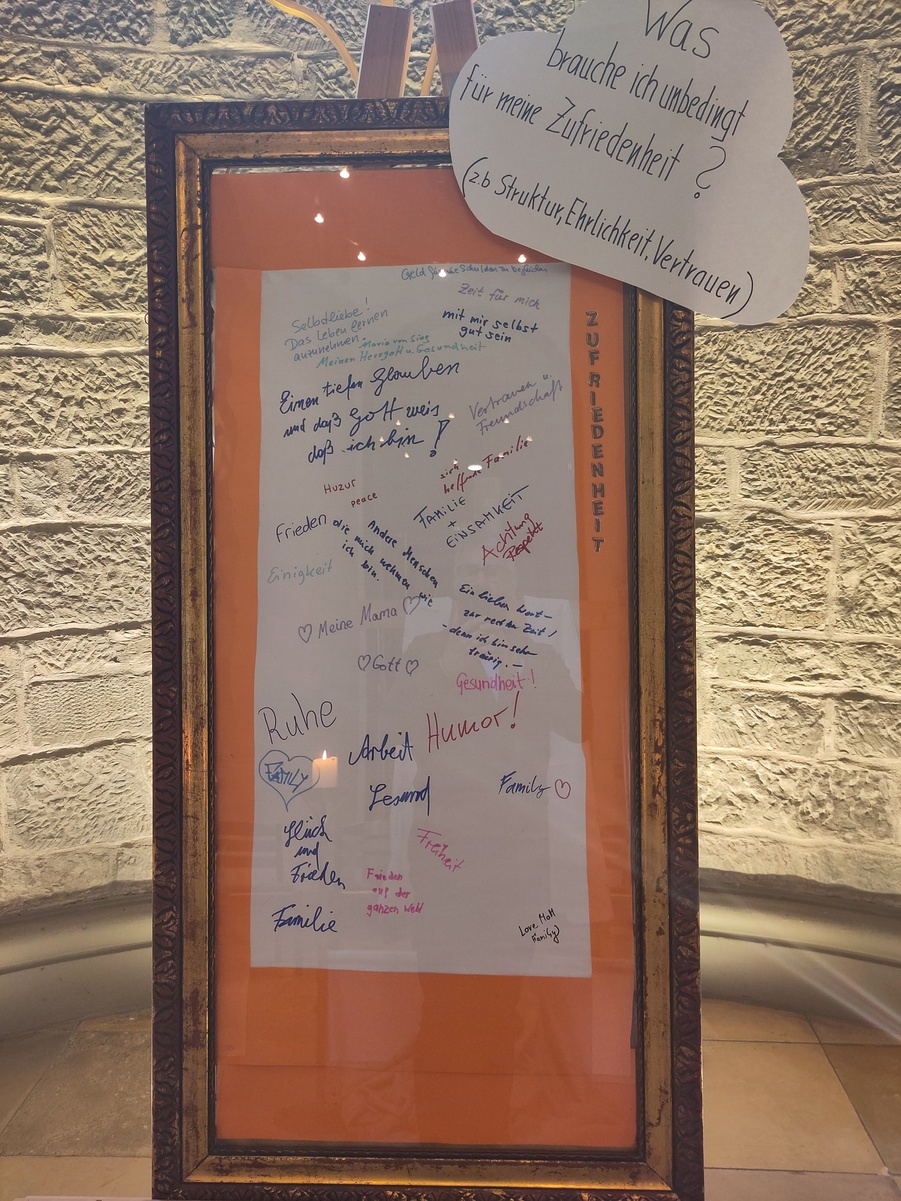 Was
brauche ich unbedingt
für meine Zufriedenheit ?
(z.b Struktur, Ehrlichkeit, Vertrauen)
ZUFRIEDENHEIT
Geld für die Schulden zu begleichen
Zeit für mich
mit mir selbst
gut sein
Selbstliebe!
Das Leben lernen
anzunehmen.
Meinen Herrgott u. Gesundheit
Einen tiefen Glauben
und daß Gott weis
daß ich bin !
Vertrauen u.
Freundschaft
Huzur
peace
Familie
FAMILIE
+
EINSAMKEIT
Achtung
Respekt
Frieden
Andere Menschen
die mich nehmen wie
ich bin.
Einigkeit
♡ Meine Mama ♡
Ein liebes Wort –
zur rechten Zeit!
– denn ich bin sehr
traurig. –
♡ Gott ♡
Gesundheit!
Ruhe
Arbeit
Humor!
FAMILY
Gesund
Family ♡
Glück
und
Frieden
Freiheit
Frieden
auf der
ganzen Welt
Familie
Love MoM
Family)